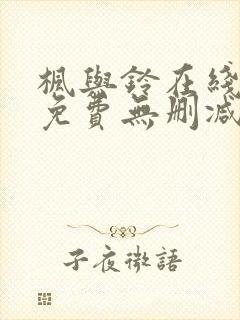 楓與鈴在綫
免費無刪減
子夜微語